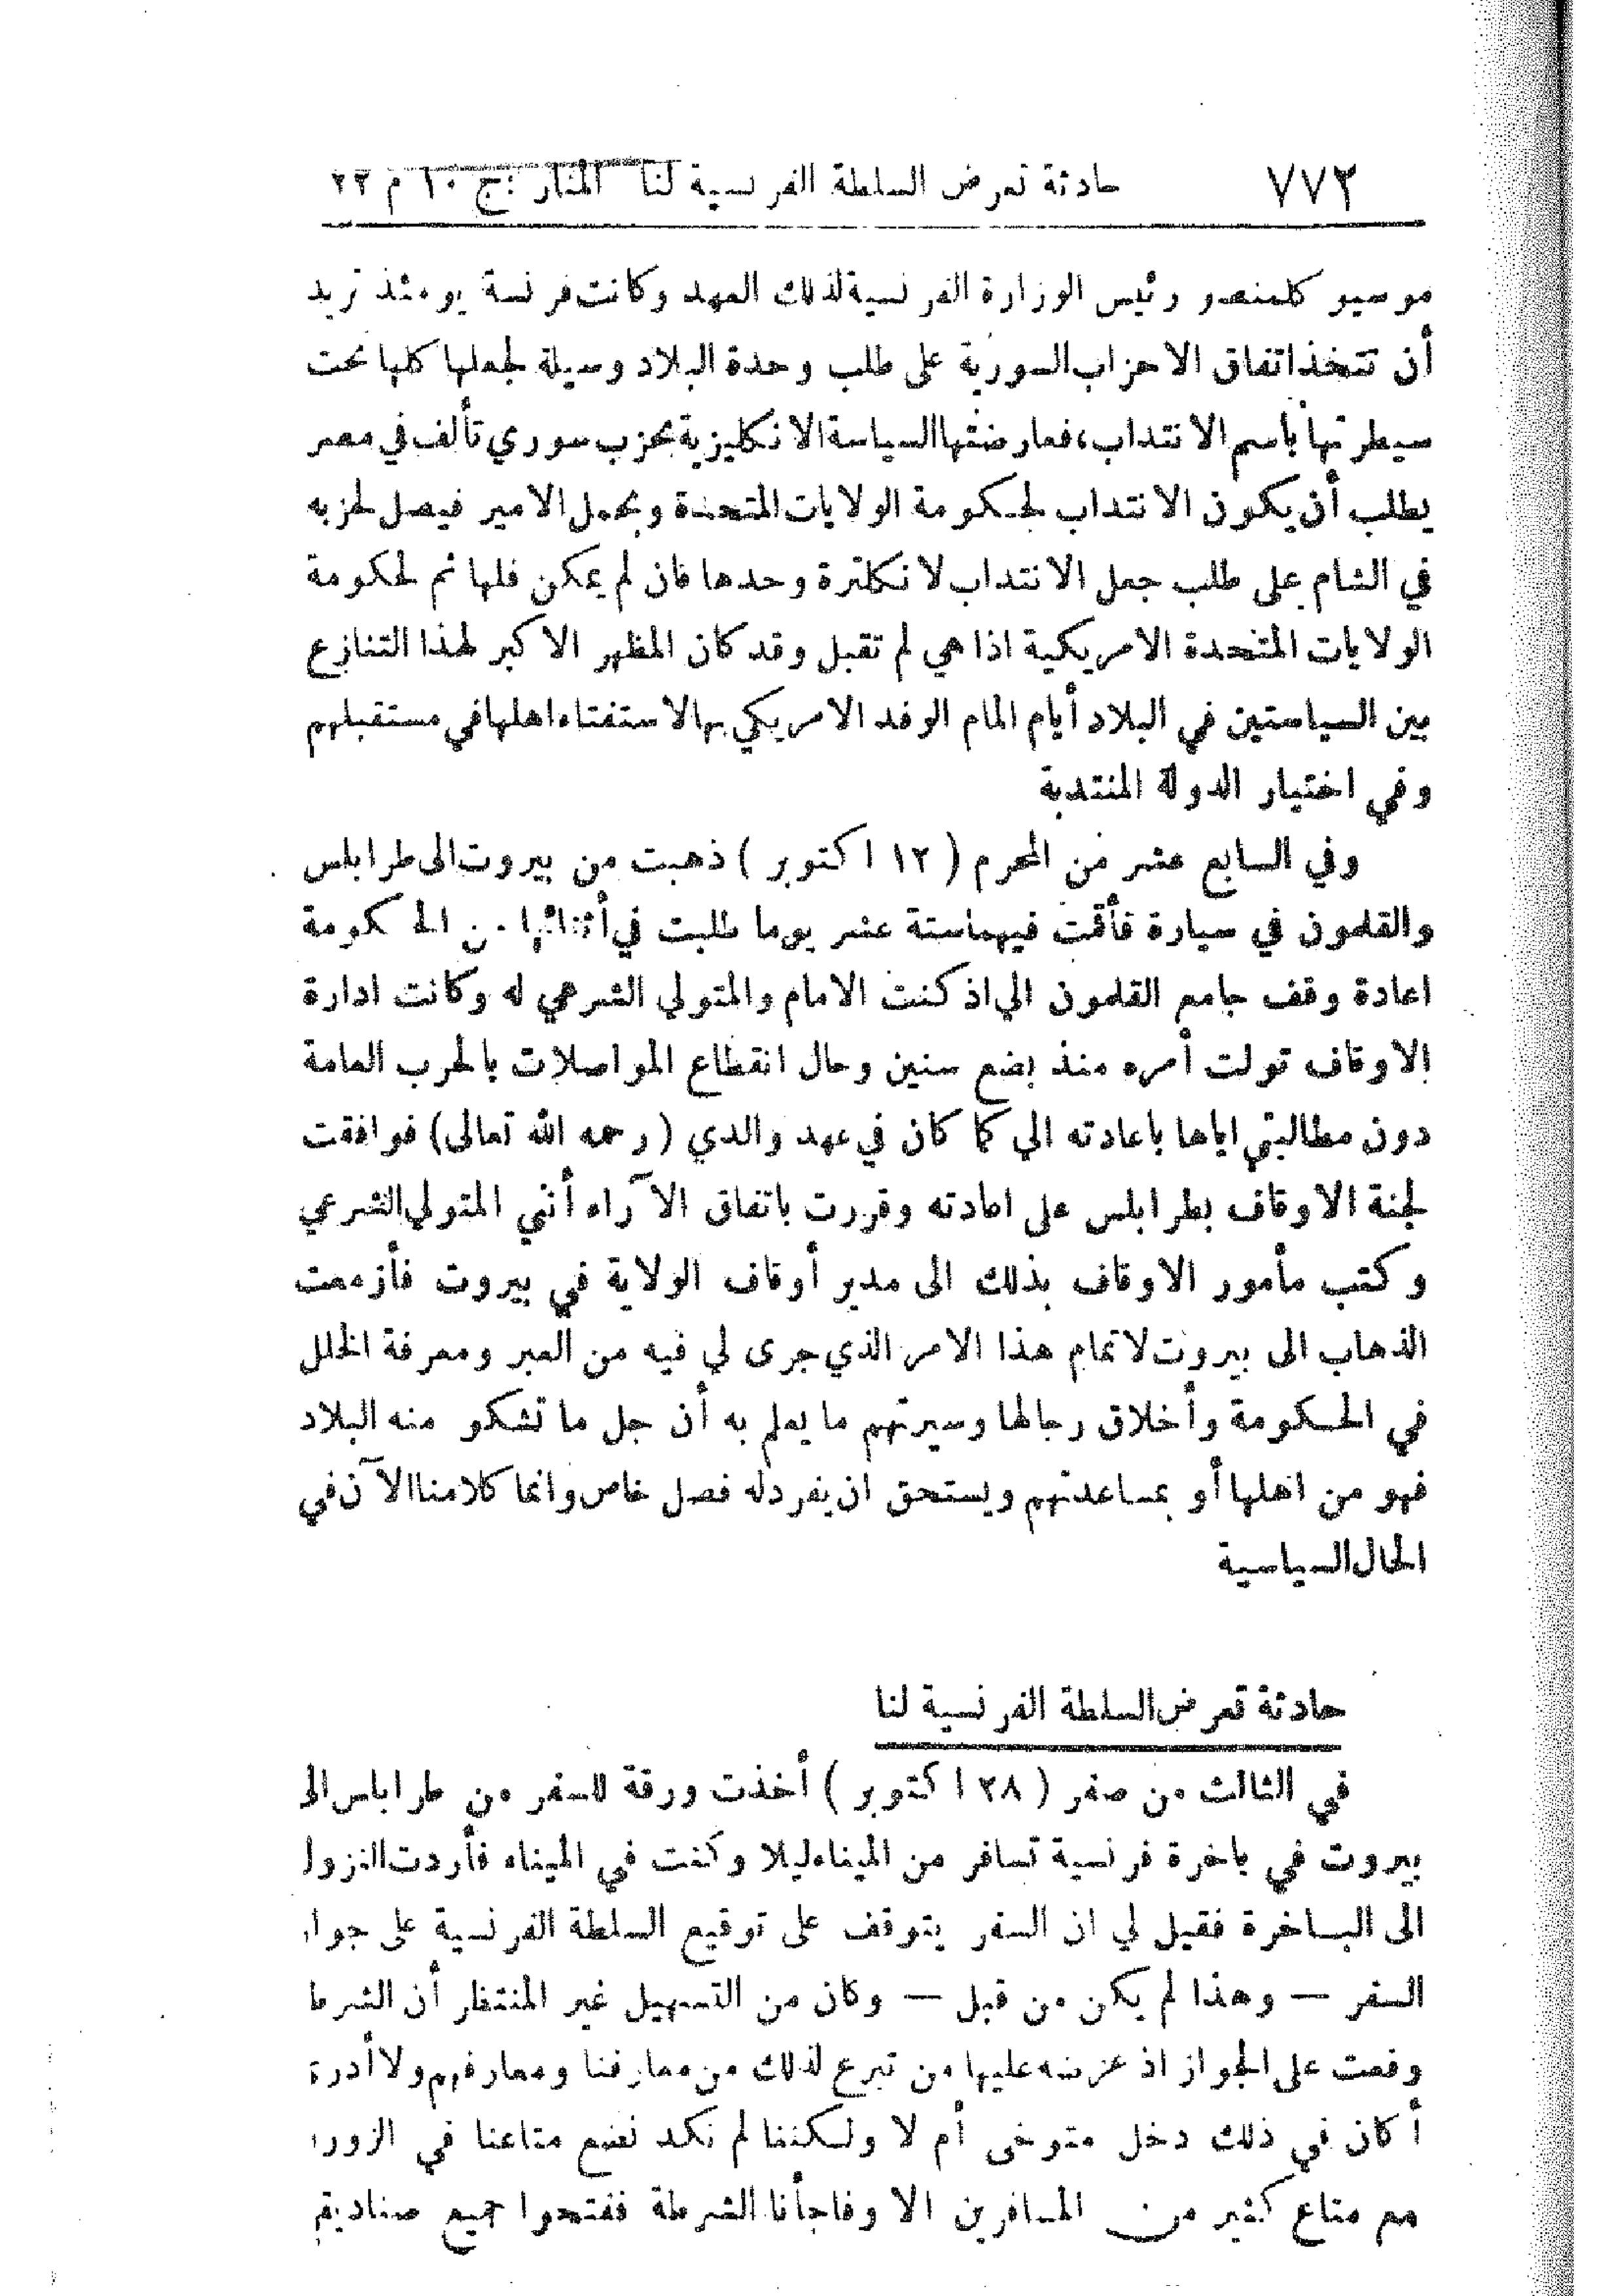 ٧٧٢ حادثة تعرض السلطة الفرنسية لنا المنار : ج ١٠ م ٢٢
موسيو كلمنصو رئيس الوزارة الفرنسية لذلك العهد وكانت فرنسة يومئذ تريد
أن تتخذ اتفاق الاحزاب السورية على طلب وحدة البلاد وسيلة لجعلها كلها تحت
سيطرتها باسم الانتداب، فعارضتها السياسة الانكليزية بحزب سوري تألف في مصر
يطلب أن يكون الانتداب لحكومة الولايات المتحدة وبحمل الامير فيصل لحزبه
في الشام على طلب جعل الانتداب لانكلترة وحدها فان لم يمكن فلها ثم لحكومة
الولايات المتحدة الامريكية اذا هي لم تقبل وقد كان المظهر الاكبر لهذا التنازع
بين السياستين في البلاد أيام المام الوفد الامريكي بها لاستفتاء اهلها في مستقبلهم
وفي اختيار الدولة المنتدبة
وفي السابع عشر من المحرم ( ١٢ اكتوبر ) ذهبت من بيروت الى طرابلس
والقلمون في سيارة فأقمت فيهما ستة عشر يوما طلبت في أثنائها من الحكومة
اعادة وقف جامع القلمون الي اذ كنت الامام والمتولي الشرعي له وكانت ادارة
الاوقاف تولت أمره منذ بضع سنين وحال انقطاع المواصلات بالحرب العامة
دون مطالبتي اياها باعادته الي كما كان في عهد والدي (رحمه الله تعالى) فوافقت
لجنة الاوقاف بطرابلس على اعادته وقررت باتفاق الآراء أنني المتولي الشرعي
وكتب مأمور الاوقاف بذلك الى مدير أوقاف الولاية في بيروت فأزمعت
الذهاب الى بيروت لاتمام هذا الامر الذي جرى لي فيه من العبر ومعرفة الخلل
في الحكومة وأخلاق رجالها وسيرتهم ما يعلم به أن جل ما تشكو منه البلاد
فهو من اهلها أو بمساعدتهم ويستحق ان يفرد له فصل خاص وانما كلامنا الآن في
الحال السياسية
حادثة تعرض السلطة الفرنسية لنا
في الثالث من صفر ( ٢٨ اكتوبر ) أخذت ورقة للسفر من طرابلس الى
بيروت في باخرة فرنسية تسافر من الميناء ليلا وكنت في الميناء فأردت النزول
الى الباخرة فقيل لي ان السفر يتوقف على توقيع السلطة الفرنسية على جوا
السفر — وهذا لم يكن من قبل — وكان من التسهيل غير المنتظر أن الشرط
وقعت على الجواز اذ عرضه عليها من تبرع لذلك من معارفنا ومعارفهم ولا أدر
أكان في ذلك دخل متوخى أم لا ولكننا لم نكد نضع متاعنا في الزور
مع متاع كثير من المسافرين الا وفاجأنا الشرطة ففتحوا جميع صناديق